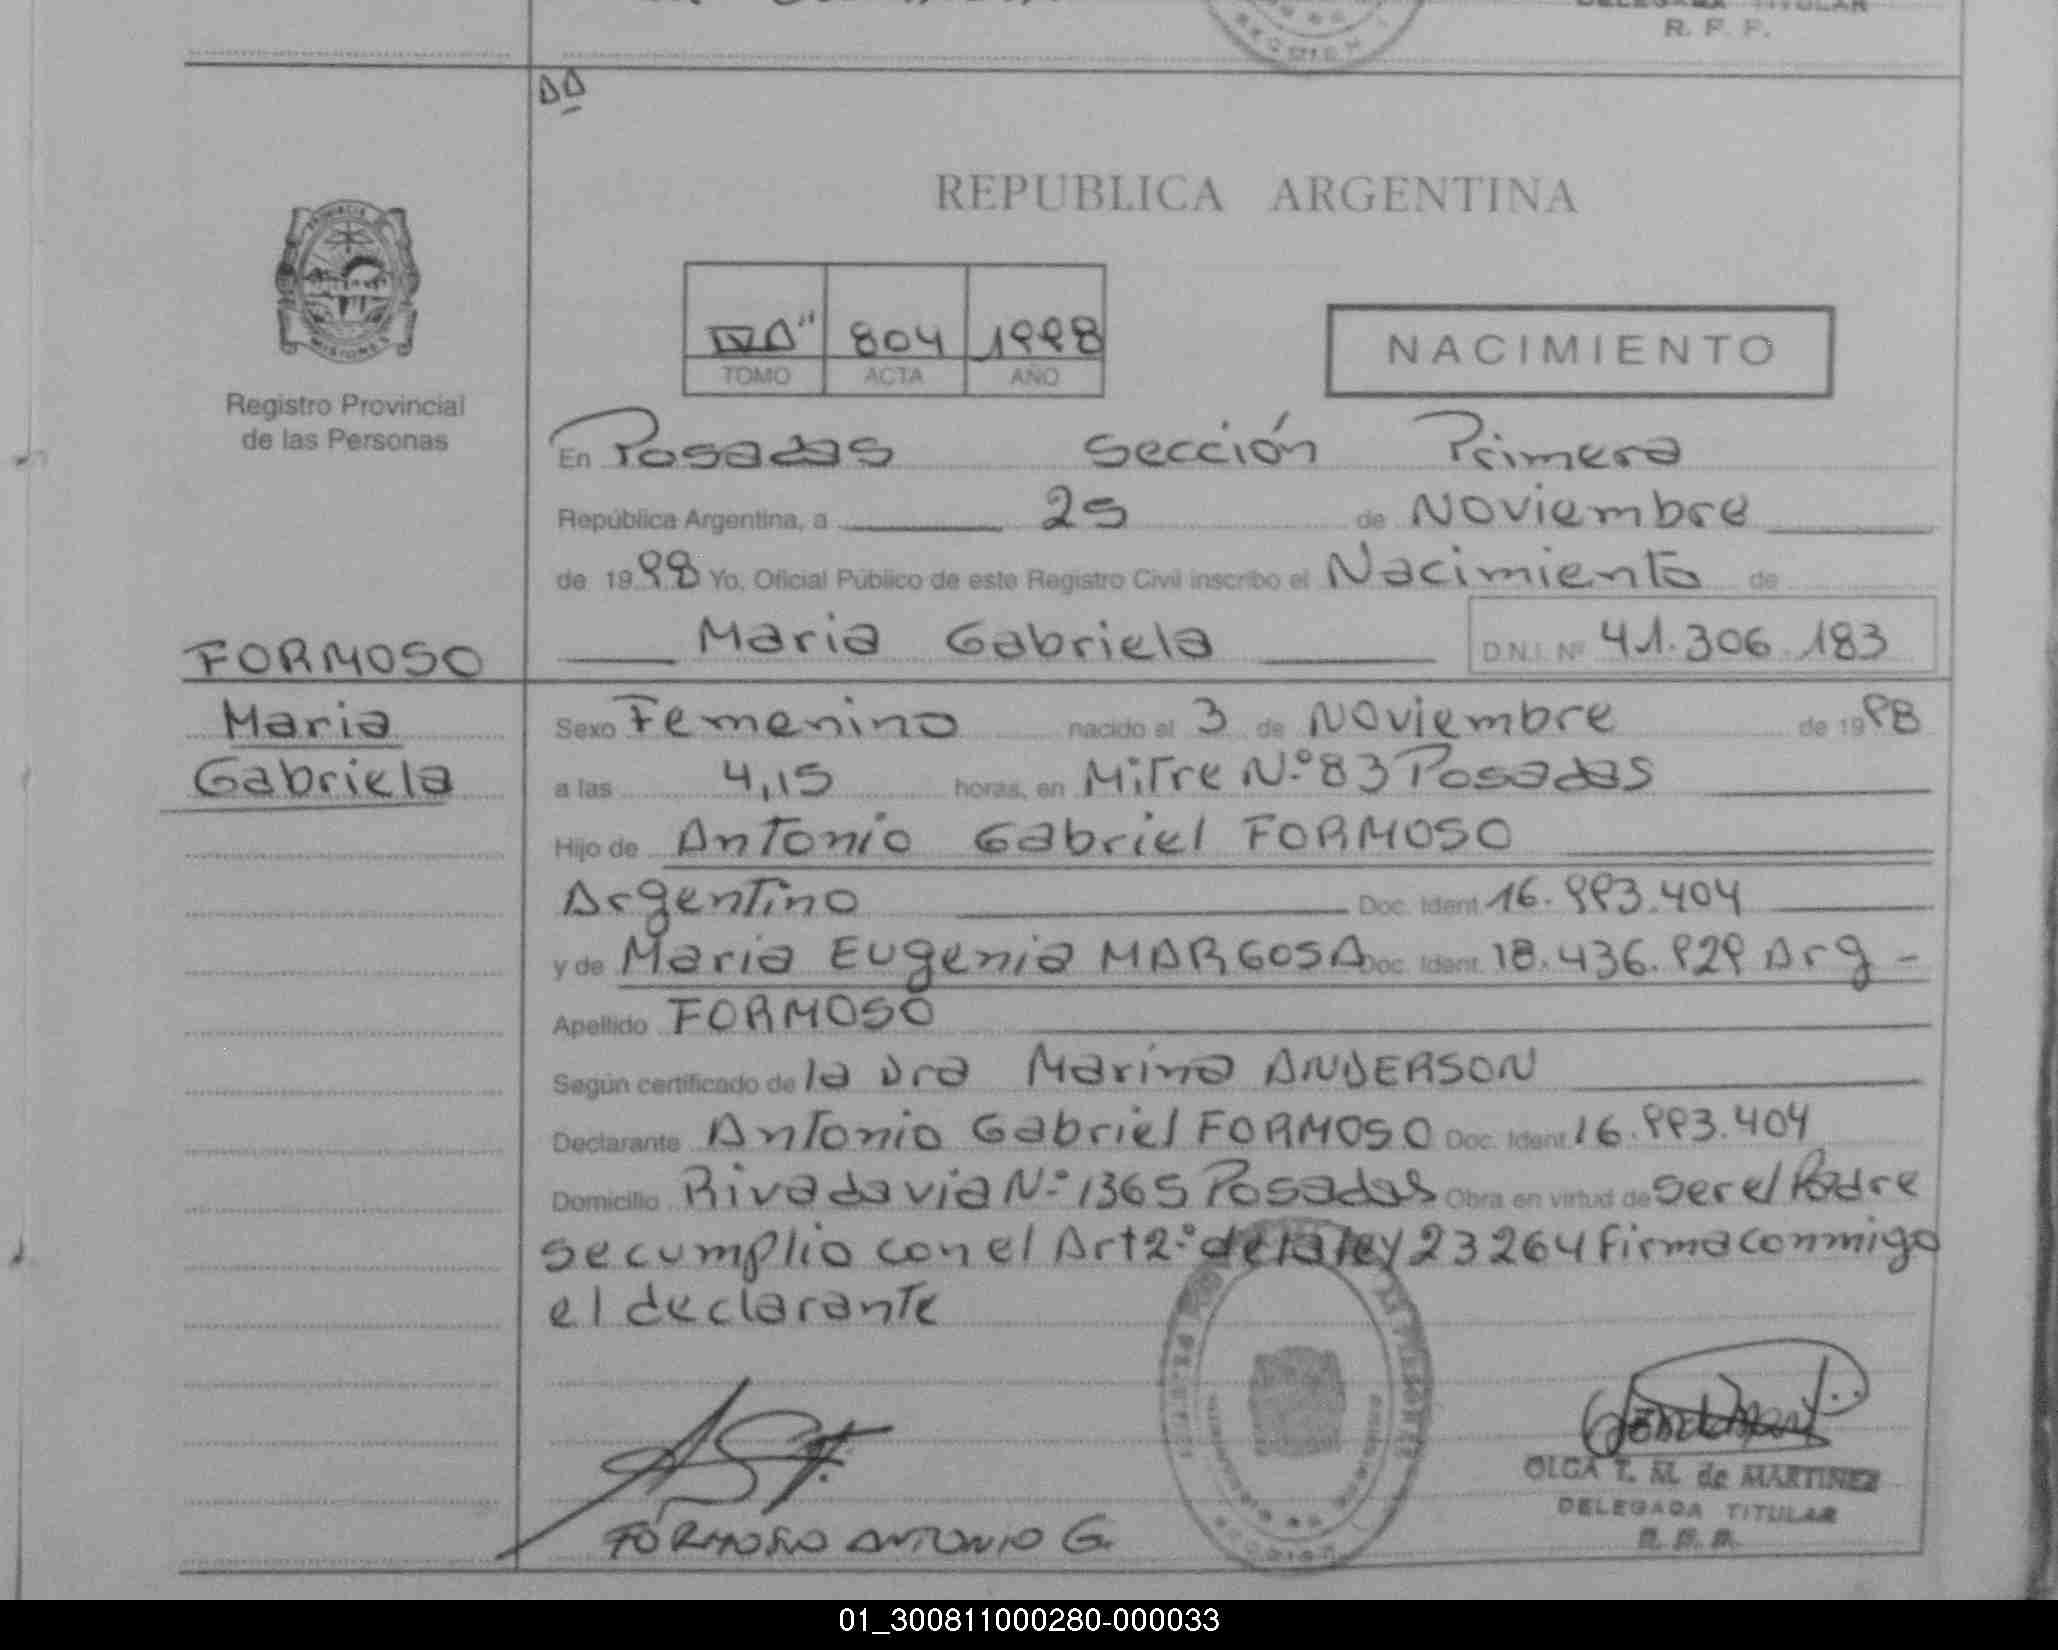 DELEGADA TITULAR
R. F. F.
REPUBLICA ARGENTINA
804 1998
TOMO ACTA AÑO
NACIMIENTO
MISIONES
Registro Provincial
de las Personas
En Posadas Sección Primera
República Argentina, a 25 de Noviembre
de 1998 Yo, Oficial Público de este Registro Civil inscribo el Nacimiento de
Maria Gabriela D.N.I. Nº 41.306.183
FORMOSO
Maria
Gabriela
Sexo Femenino nacido el 3 de Noviembre de 1998
a las 4,15 horas, en Mitre N.º 83 Posadas
Hijo de Antonio Gabriel FORMOSO
Argentino Doc. Ident. 16.993.404
y de Maria Eugenia MARGOSA Doc. Ident. 18.436.929 Arg -
Apellido FORMOSO
Según certificado de la Dra Marina ANDERSON
Declarante Antonio Gabriel FORMOSO Doc. Ident. 16.993.404
Domicilio Rivadavia N.º 1365 Posadas Obra en virtud de ser el Padre
se cumplio con el Art 2.º de la ley 23264 firma conmigo
el declarante
FORMOSO ANTONIO G.
OLGA T. M. de MARTINEZ
DELEGADA TITULAR
01_300811000280-000033